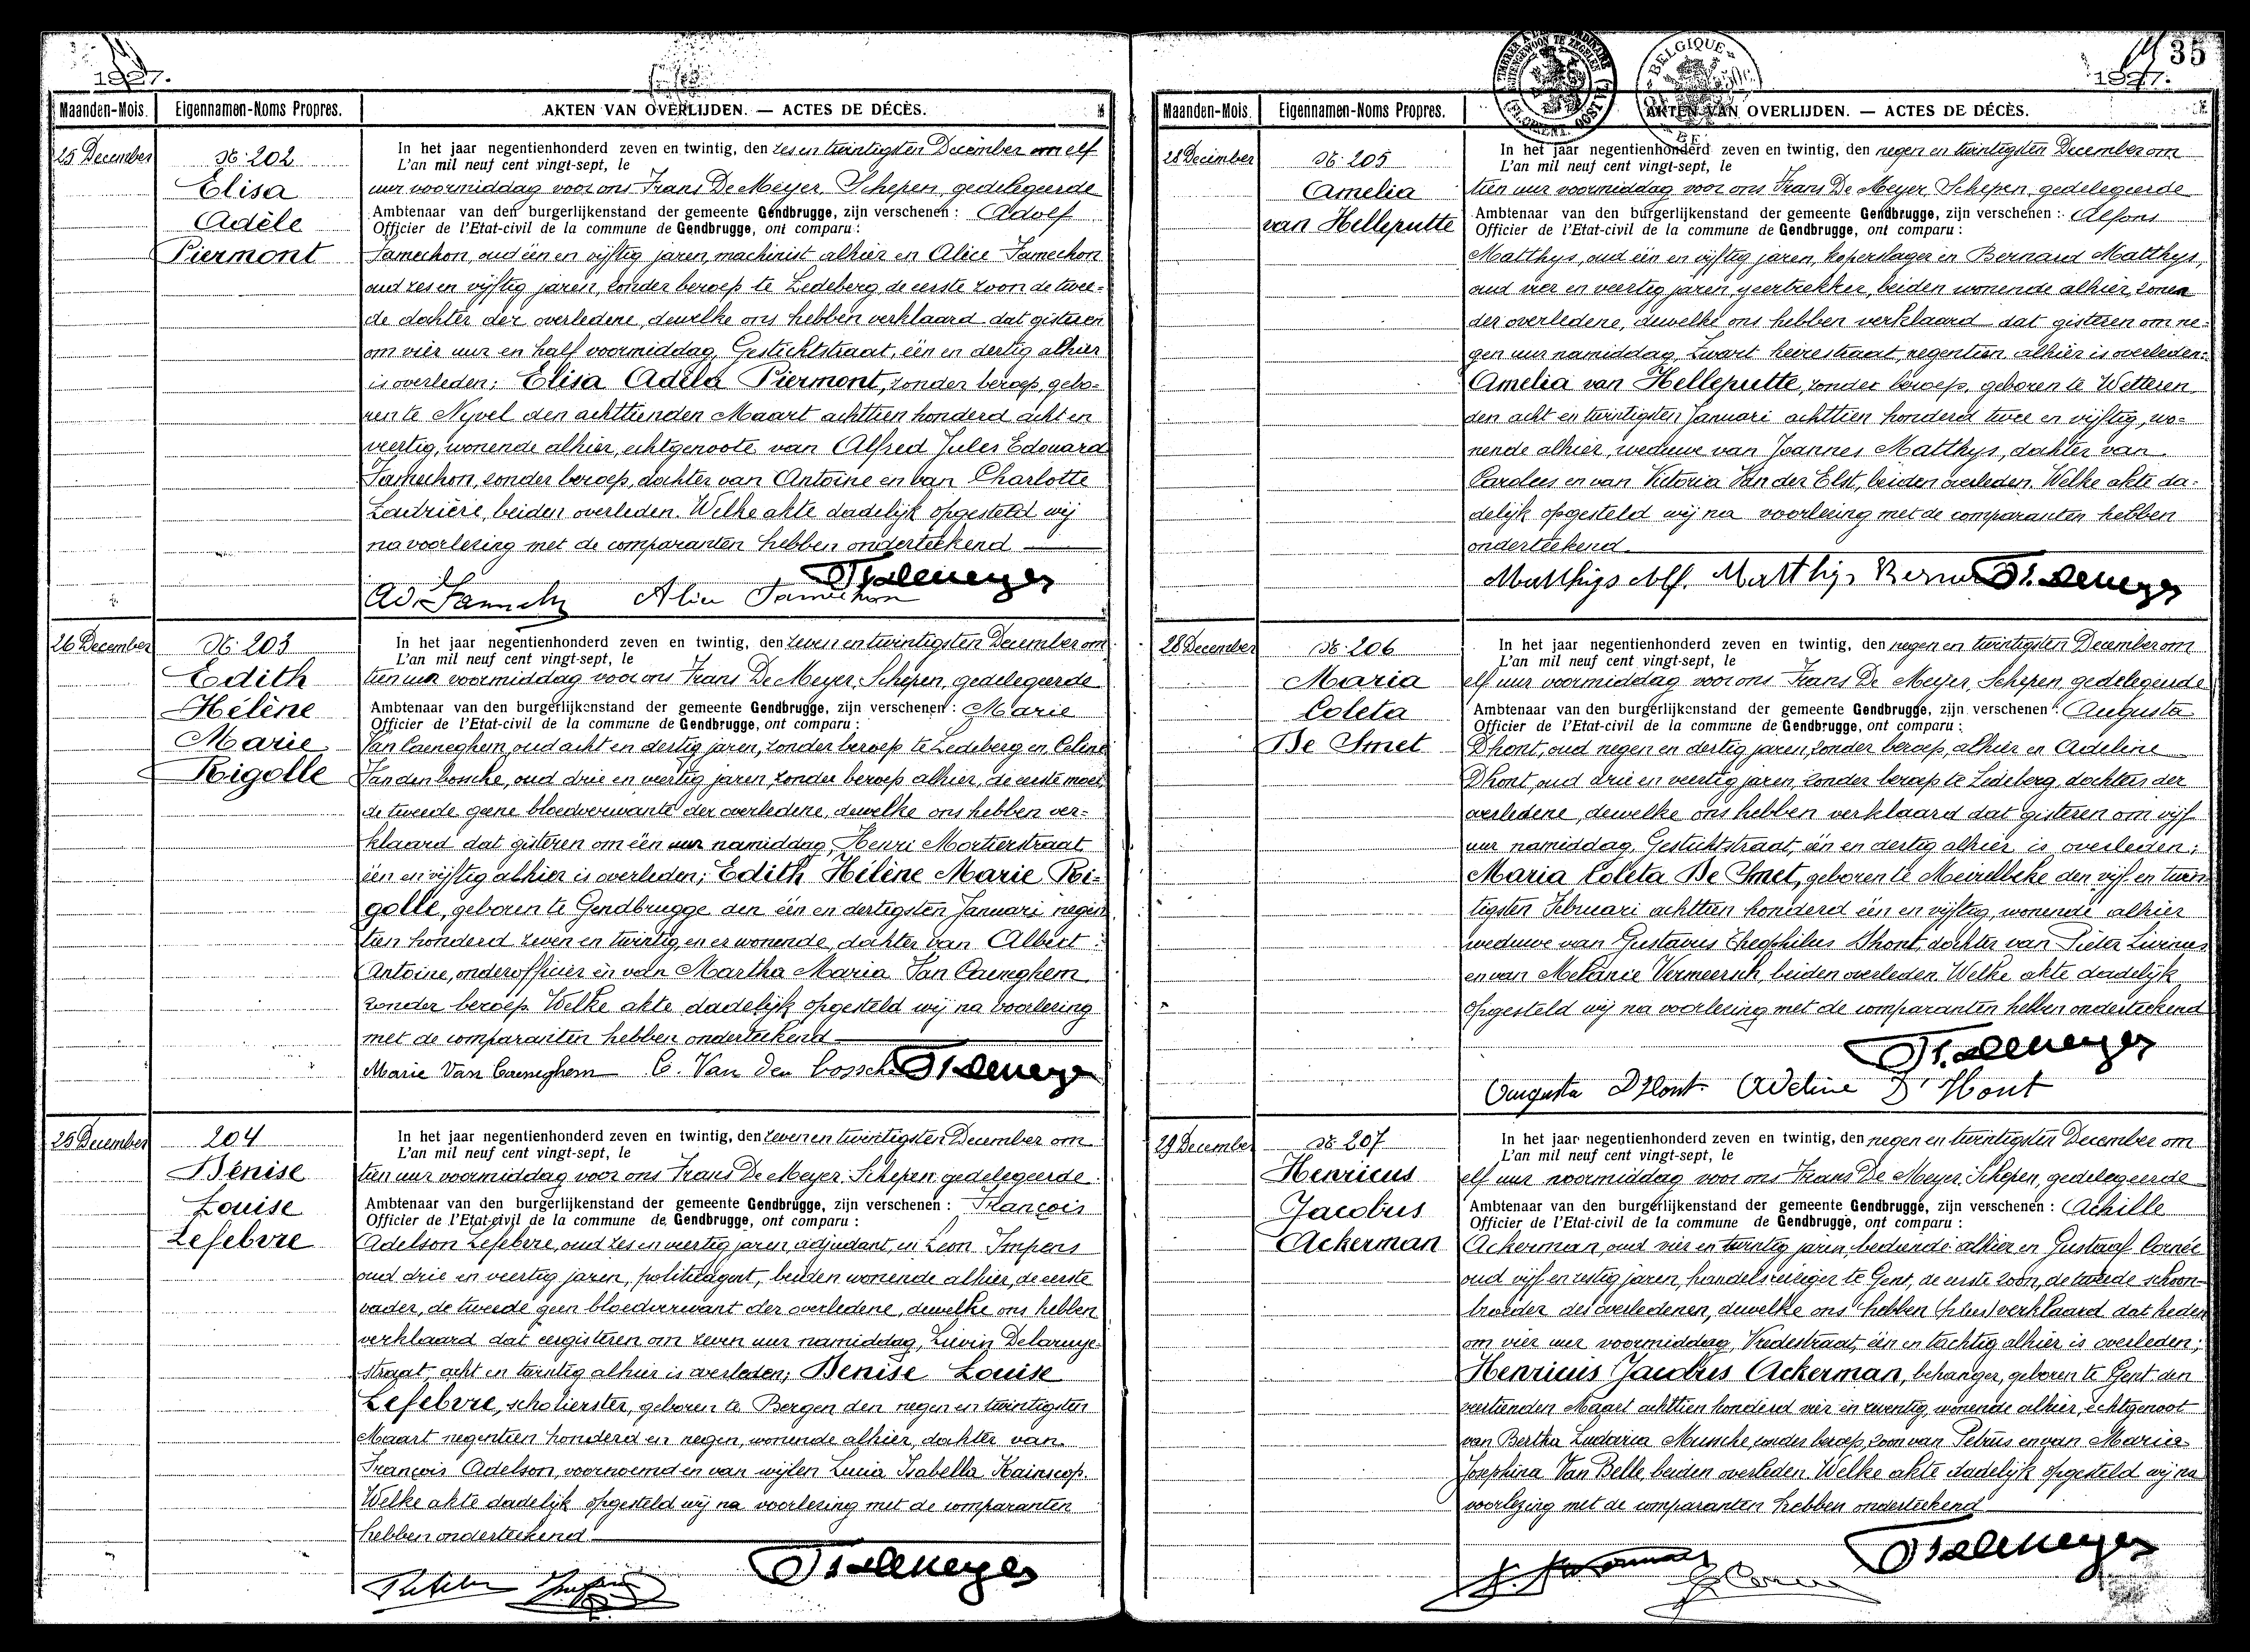 1927.
Maanden-Mois. Eigennamen-Noms Propres. AKTEN VAN OVERLIJDEN. — ACTES DE DÉCÈS.
25 December
№ 202
Elisa
Adèle
Piermont
In het jaar negentienhonderd zeven en twintig, den zes en twintigsten December om elf
L'an mil neuf cent vingt-sept, le
uur voormiddag voor ons Frans De Meyer, Schepen, gedelegeerde
Ambtenaar van den burgerlijkenstand der gemeente Gendbrugge, zijn verschenen : Adolf
Officier de l'Etat-civil de la commune de Gendbrugge, ont comparu :
Jamechon, oud één en vijftig jaren, machinist alhier en Alice Jamechon
oud zes en vijftig jaren, zonder beroep te Ledeberg, de eerste zoon de twee-
de dochter der overledene, dewelke ons hebben verklaard dat gisteren
om vier uur en half voormiddag, Gestichtstraat, één en dertig alhier
is overleden: Elisa Adela Piermont, zonder beroep, gebo-
ren te Nyvel den achttienden Maart achttien honderd acht en
veertig, wonende alhier, echtgenoote van Alfred Jules Edouard
Jamechon, zonder beroep, dochter van Antoine en van Charlotte
Ladrière, beiden overleden. Welke akte dadelijk opgesteld wij
na voorlezing met de comparanten hebben onderteekend
Alice Jamechon Frdemeyer
26 December
№ 203
Edith
Hélène
Marie
Rigolle
In het jaar negentienhonderd zeven en twintig, den zeven en twintigsten December om
L'an mil neuf cent vingt-sept, le
tien uur voormiddag voor ons Frans De Meyer, Schepen, gedelegeerde
Ambtenaar van den burgerlijkenstand der gemeente Gendbrugge, zijn verschenen : Marie
Officier de l'Etat-civil de la commune de Gendbrugge, ont comparu :
Van Caeneghem, oud acht en dertig jaren, zonder beroep te Ledeberg en Celine
Vandenbossche, oud drie en veertig jaren, zonder beroep alhier, de eerste moei,
de tweede geene bloedverwante der overledene, dewelke ons hebben ver-
klaard dat gisteren om één uur namiddag, Henri Mortierstraat
één en vijftig alhier is overleden; Edith Hélène Marie Ri-
golle, geboren te Gendbrugge den één en dertigsten Januari negen
tien honderd zeven en twintig en er wonende, dochter van Albert
Antoine, onderofficier en van Martha Maria Van Caeneghem
zonder beroep. Welke akte dadelijk opgesteld wij na voorlezing
met de comparanten hebben onderteekend
Marie Van Caeneghem C. Van den bossche Frdemeyer
25 December
204
Denise
Louise
Lefebvre
In het jaar negentienhonderd zeven en twintig, den zeven en twintigsten December om
L'an mil neuf cent vingt-sept, le
tien uur voormiddag voor ons Frans De Meyer, Schepen, gedelegeerde
Ambtenaar van den burgerlijkenstand der gemeente Gendbrugge, zijn verschenen : François
Officier de l'Etat-civil de la commune de Gendbrugge, ont comparu :
Adelson Lefebvre, oud zes en veertig jaren, adjudant, en Leon Impens
oud drie en veertig jaren, politieagent, beiden wonende alhier, de eerste
vader, de tweede geen bloedverwant der overledene, dewelke ons hebben
verklaard dat eergisteren om zeven uur namiddag, Lievin Delaruye-
straat, acht en twintig alhier is overleden; Denise Louise
Lefebvre, scholierster, geboren te Bergen den negen en twintigsten
Maart negentien honderd en negen, wonende alhier, dochter van
François Adelson, voornoemd en van wijlen Lucia Isabella Kainscop.
Welke akte dadelijk opgesteld wij na voorlezing met de comparanten
hebben onderteekend
Frdemeyer
35
1927.
BELGIQUE
Maanden-Mois. Eigennamen-Noms Propres. AKTEN VAN OVERLIJDEN. — ACTES DE DÉCÈS.
28 December
№ 205
Amelia
van Helleputte
In het jaar negentienhonderd zeven en twintig, den negen en twintigsten December om
L'an mil neuf cent vingt-sept, le
tien uur voormiddag voor ons Frans De Meyer, Schepen, gedelegeerde
Ambtenaar van den burgerlijkenstand der gemeente Gendbrugge, zijn verschenen : Alfons
Officier de l'Etat-civil de la commune de Gendbrugge, ont comparu :
Matthys, oud één en vijftig jaren, koperslager en Bernard Matthys,
oud vier en veertig jaren, geertrekker, beiden wonende alhier, zonen
der overledene, dewelke ons hebben verklaard dat gisteren om ne-
gen uur namiddag, Zwart heirestraat, negentien alhier is overleden:
Amelia van Helleputte, zonder beroep, geboren te Wetteren
den acht en twintigsten Januari achttien honderd twee en vijftig, wo-
nende alhier, weduwe van Joannes Matthys, dochter van
Carolees en van Victoria Van der Elst, beiden overleden. Welke akte da-
delijk opgesteld wij na voorlezing met de comparanten hebben
onderteekend
Matthijs Alf. Matthijs Bernard Frdemeyer
28 December
№ 206
Maria
Coleta
De Smet
In het jaar negentienhonderd zeven en twintig, den negen en twintigsten December om
L'an mil neuf cent vingt-sept, le
elf uur voormiddag voor ons Frans De Meyer, Schepen, gedelegeerde
Ambtenaar van den burgerlijkenstand der gemeente Gendbrugge, zijn verschenen : Augusta
Officier de l'Etat-civil de la commune de Gendbrugge, ont comparu :
Dhont, oud negen en dertig jaren, zonder beroep, alhier en Adeline
Dhont, oud drie en veertig jaren, zonder beroep te Ledeberg, dochters der
overledene, dewelke ons hebben verklaard dat gisteren om vijf
uur namiddag, Gestichtstraat, één en dertig alhier is overleden;
Maria Coleta De Smet, geboren te Meirelbeke den vijf en twin
tigsten Februari achttien honderd één en vijftig, wonende alhier
weduwe van Gustavus Theophilus Dhont, dochter van Pieter Livinus
en van Melanie Vermeersch, beiden overleden. Welke akte dadelijk
opgesteld wij na voorlezing met de comparanten hebben onderteekend
Frdemeyer
Augusta D'Hont Adeline D'Hont
29 December
№ 207
Henricus
Jacobus
Ackerman
In het jaar negentienhonderd zeven en twintig, den negen en twintigsten December om
L'an mil neuf cent vingt-sept, le
elf uur voormiddag voor ons Frans De Meyer, Schepen, gedelegeerde
Ambtenaar van den burgerlijkenstand der gemeente Gendbrugge, zijn verschenen : Achille
Officier de l'Etat-civil de la commune de Gendbrugge, ont comparu :
Ackerman, oud vier en twintig jaren, bediende alhier en Gustaaf Cornée
oud vijf en zestig jaren, handelsreiziger te Gent, de eerste zoon, de tweede schoon-
broeder des overledenen, dewelke ons hebben verklaard dat heden
om vier uur voormiddag, Vredestraat, één en tachtig alhier is overleden;
Henricus Jacobus Ackerman, behanger, geboren te Gent den
veertienden Maart achttien honderd vier en zeventig, wonende alhier, echtgenoot
van Bertha Ludovica Mussche, zonder beroep, zoon van Petrus en van Maria
Josephina Van Belle, beiden overleden. Welke akte dadelijk opgesteld wij na
voorlezing met de comparanten hebben onderteekend
Frdemeyer